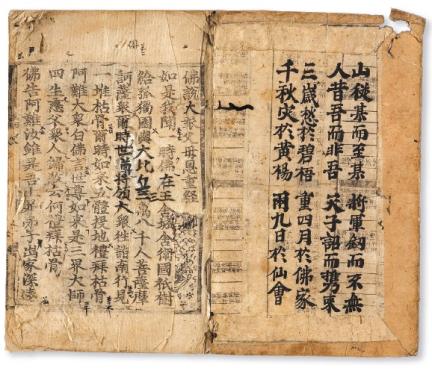 山從基而至基 將軍劍而不無
人昔吾而非吾 天子詔而 東
三歲愁於碧梧 重四月於佛家
千秋 於黃楊 兩九日於仙會
佛說大報父母恩重經
如是我聞一時佛在王舍城舍衛國祇樹
給孤獨園與大比丘三萬八千人菩薩摩
訶薩衆爾時世尊將領大衆往詣南行見
一堆枯骨爾時如來五體投地禮拜枯骨
阿難大衆白佛言世尊如來是三界大師
四生慈父衆人歸敬云何禮拜枯骨
佛告阿難汝雖是吾上 弟子出家深遠